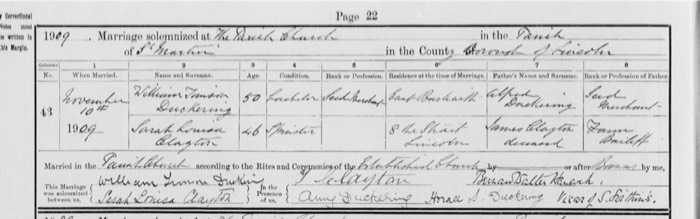 Page 22
1909. Marriage solemnized at The Parish Church in the Parish
of St Martin in the County Borough of Lincoln
Columns 1 2 3 4 5 6 7 8
No. When Married. Name and Surname. Age. Condition. Rank or Profession. Residence at the time of Marriage. Father's Name and Surname. Rank or Profession of Father.
43 November 10th 1909 William Duckering 50 bachelor Seed Merchant East Alfred Duckering Seed Merchant
Sarah Louisa Clayton 46 Spinster 8 the Strait Lincoln James Clayton deceased Farm Bailiff
Married in the Parish Church according to the Rites and Ceremonies of the Established Church by or after Banns by me,
This Marriage was solemnized between us, William Duckering Sarah Louisa Clayton in the Presence of us, Clayton Amy Duckering Horace S. Duckering Vicar of S. Swithin's.